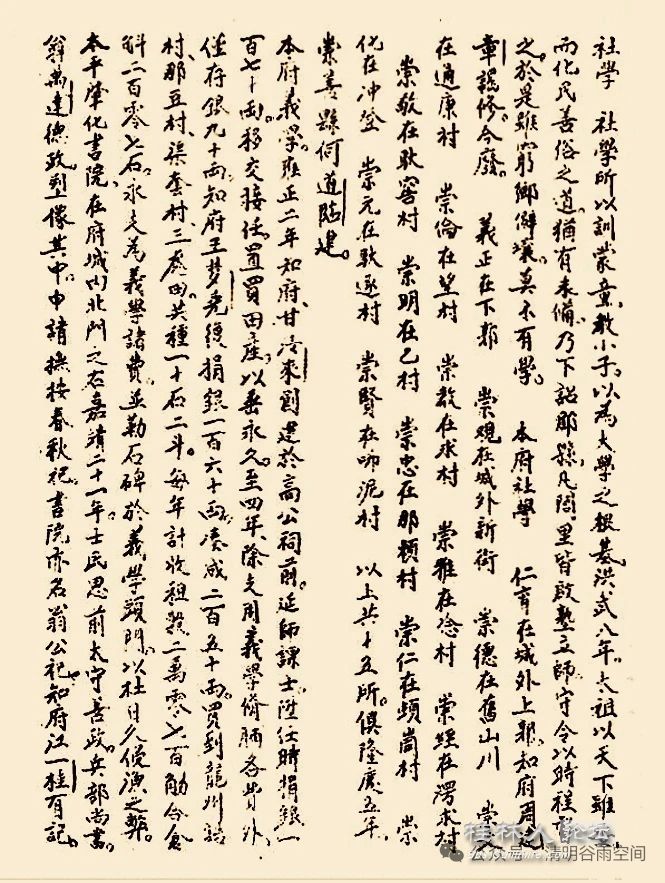 社學　社學所以訓蒙童教小子。以為大學之根基。洪武八年。太祖以天下雖安。
而化民善俗之道。猶有未備。乃下詔郡縣。凡閭里皆啟塾立師。守令以時程課
之。於是雖窮鄉僻壤。莫不有學。　本府社學　仁育在城外上郭。知府周
章議修。今廢。　義正在下郭　崇觀在城外新街　崇德在舊山川　崇文
在通康村　崇倫在望村　崇教在求村　崇雅在冷村　崇經在村
崇敬在馱窖村　崇明在乙村　崇忠在那頓村　崇仁在村　崇
化在冲登　崇元在馱逐村　崇賢在咘泥村　以上共十五所。俱隆慶五年。
崇善縣何建。
本府義學。雍正二年知府甘汝來剙建於高公祠前。延師課士。陞任時捐銀一
百七十兩。移交接任。置買田產。以垂永久。至四年。除支用義學脩脯各費外。
僅存銀九十兩。知府王夢堯復捐銀一百六十兩。湊成二百五十兩。買到龍州
村。那豆村。渠套村。三處田。共種一十石二斗。每年計收租穀二萬零七百觔。合倉
斛二百零七石。永久為義學諸費。並勒石碑於義學頭門。以杜日久侵漁之弊。
太平肇化書院。在府城內北門之右。嘉靖二十一年。士民思前太守善政。兵部尚書
翁萬達德政。塑像其中。申請撫按春秋祀。書院亦名翁公祀。知府江一桂有記。
桂林人論壇
公众号·清明谷雨空间